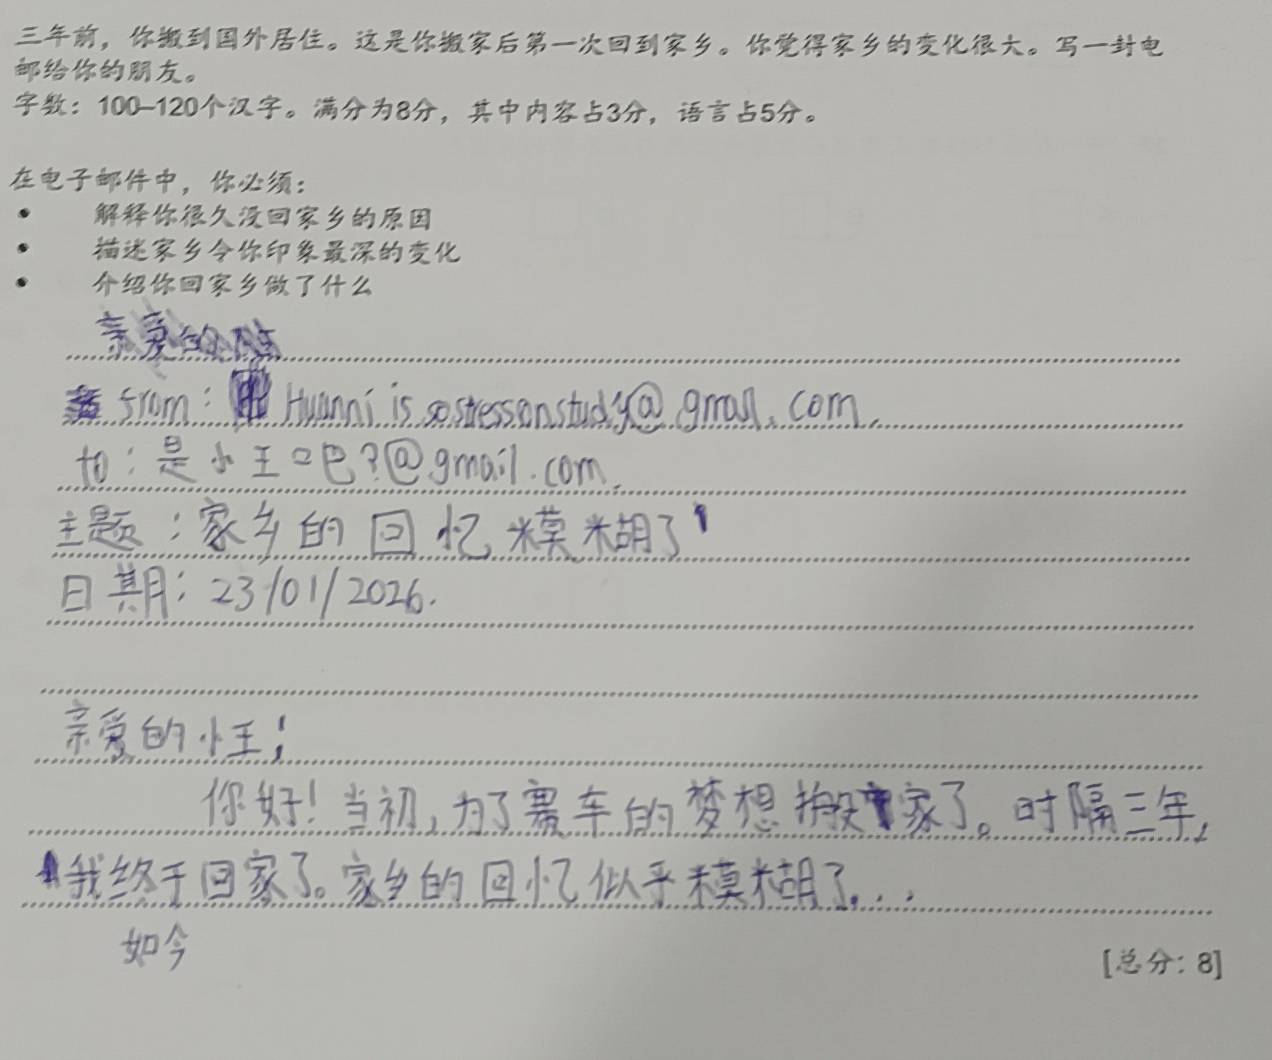 三年前，你搬到国外居住。这是你搬家后第一次回到家乡。你觉得家乡的变化很大。写一封电
邮给你的朋友。
字数：100–120个汉字。满分为8分，其中内容占3分，语言占5分。
在电子邮件中，你必须：
• 解释你很久没回家乡的原因
• 描述家乡令你印象最深的变化
• 介绍你回家乡做了什么
亲爱的
from: Huanni is sostressonstudy@gmail.com.
to：是小王吧?@gmail.com.
主题：家乡的回忆模糊了
日期：23/01/2026.
亲爱的小王：
你好！当初，为了赛车的梦想搬家了。时隔三年，
我终于回家了。家乡的回忆似乎模糊了...
如今
[总分：8]